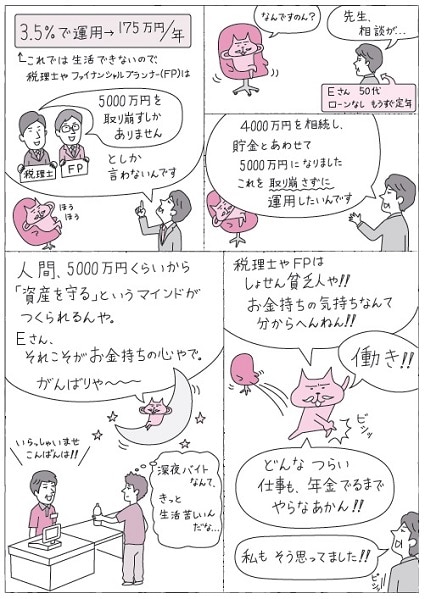 先生、
相談が…
なんですのん？
Eさん 50代
ローンなし もうすぐ定年
4000万円を相続し、
貯金とあわせて
5000万円になりました
これを取り崩さずに
運用したいんです
3.5%で運用→175万円/年
これでは生活できないので、
税理士やファイナンシャルプランナー(FP)は
5000万円を
取り崩すしか
ありません
税理士
FP
としか
言わないんです
ほう
ほう
税理士やFPは
しょせん貧乏人や!!
お金持ちの気持ちなんて
分からへんねん!!
働き!!
ビシッ
どんな つらい
仕事も、年金でるまで
やらなあかん!!
私も そう思ってました!!
ビシッ
人間、5000万円くらいから
「資産を守る」というマインドが
つくられるんや。
Eさん、
それこそがお金持ちの心やで。
がんばりや〜〜〜
いらっしゃいませ
こんばんは!!
深夜バイト
なんて、
きっと
生活苦しいん
だな…